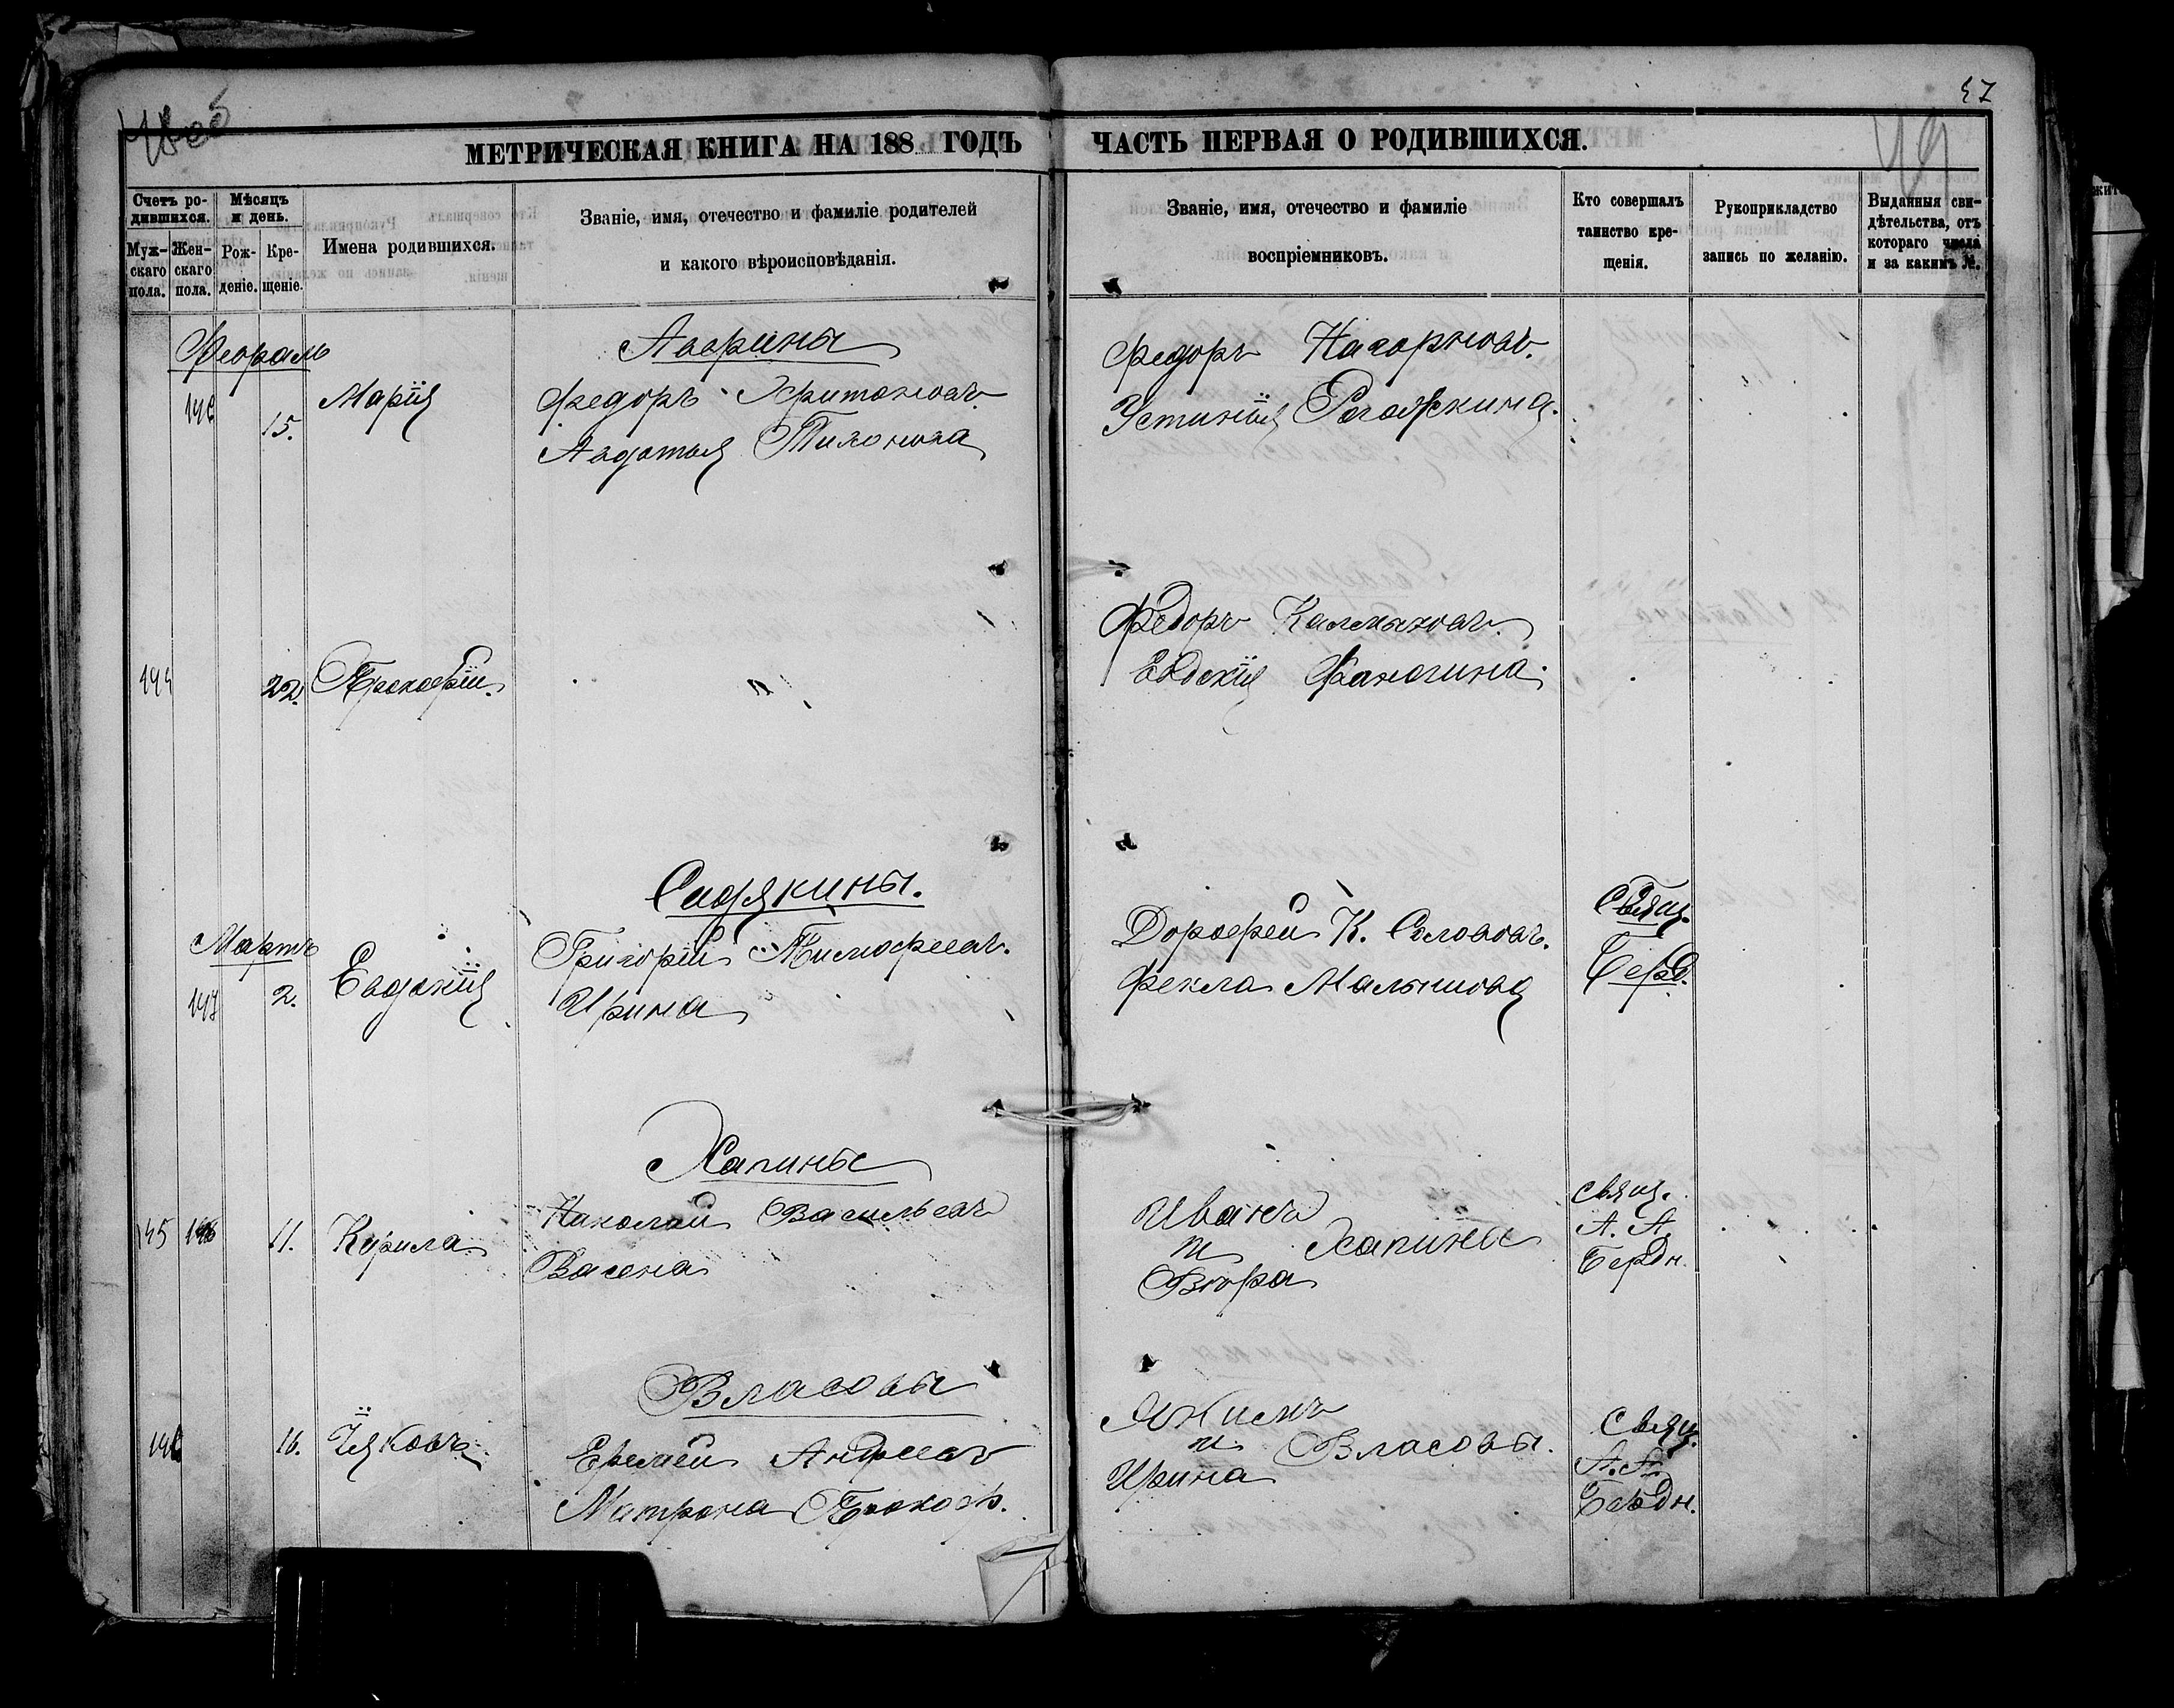 57
49
МЕТРИЧЕСКАЯ КНИГА НА 188 ГОДЪ
ЧАСТЬ ПЕРВАЯ О РОДИВШИХСЯ.
Счетъ родившихся.
Мужскаго пола.
Женскаго пола.
Мѣсяцъ и день.
Рожденіе.
Крещеніе.
Имена родившихся.
Званіе, имя, отечество и фамиліе родителей
и какого вѣроисповѣданія.
Званіе, имя, отечество и фамиліе
воспріемниковъ.
Кто совершалъ
таинство крещенія.
Рукоприкладство
запись по желанію.
Выданныя свидѣтельства, отъ
котораго числа
и за какимъ №.
Февраль
146
15.
Марія
Аверины
Федоръ Харитоновъ
Авдотья Тихонова
Федоръ Нагорновъ.
Устинія Рогожкина.
144
22.
Прокофій.
"
Федоръ Калмыковъ.
Евдокія Фаногина.
Мартъ
147
2.
Евдокія
Садякины.
Григорій Тимофеевъ.
Ирина
Дорофей К. Солововъ.
Фекла Мальникова
Свящ.
Берд.
145
148
11.
Курила
Хапины
Николай Васильевъ
Васена
Иванъ
и Хапины
Вѣра
Свящ.
А. А.
Бердн.
146
16.
Іяковъ
Власовы
Еремей Андреевъ
Матрона Прокоф.
Якимъ
и Власовы.
Ирина
Свящ.
А. А.
Бердн.